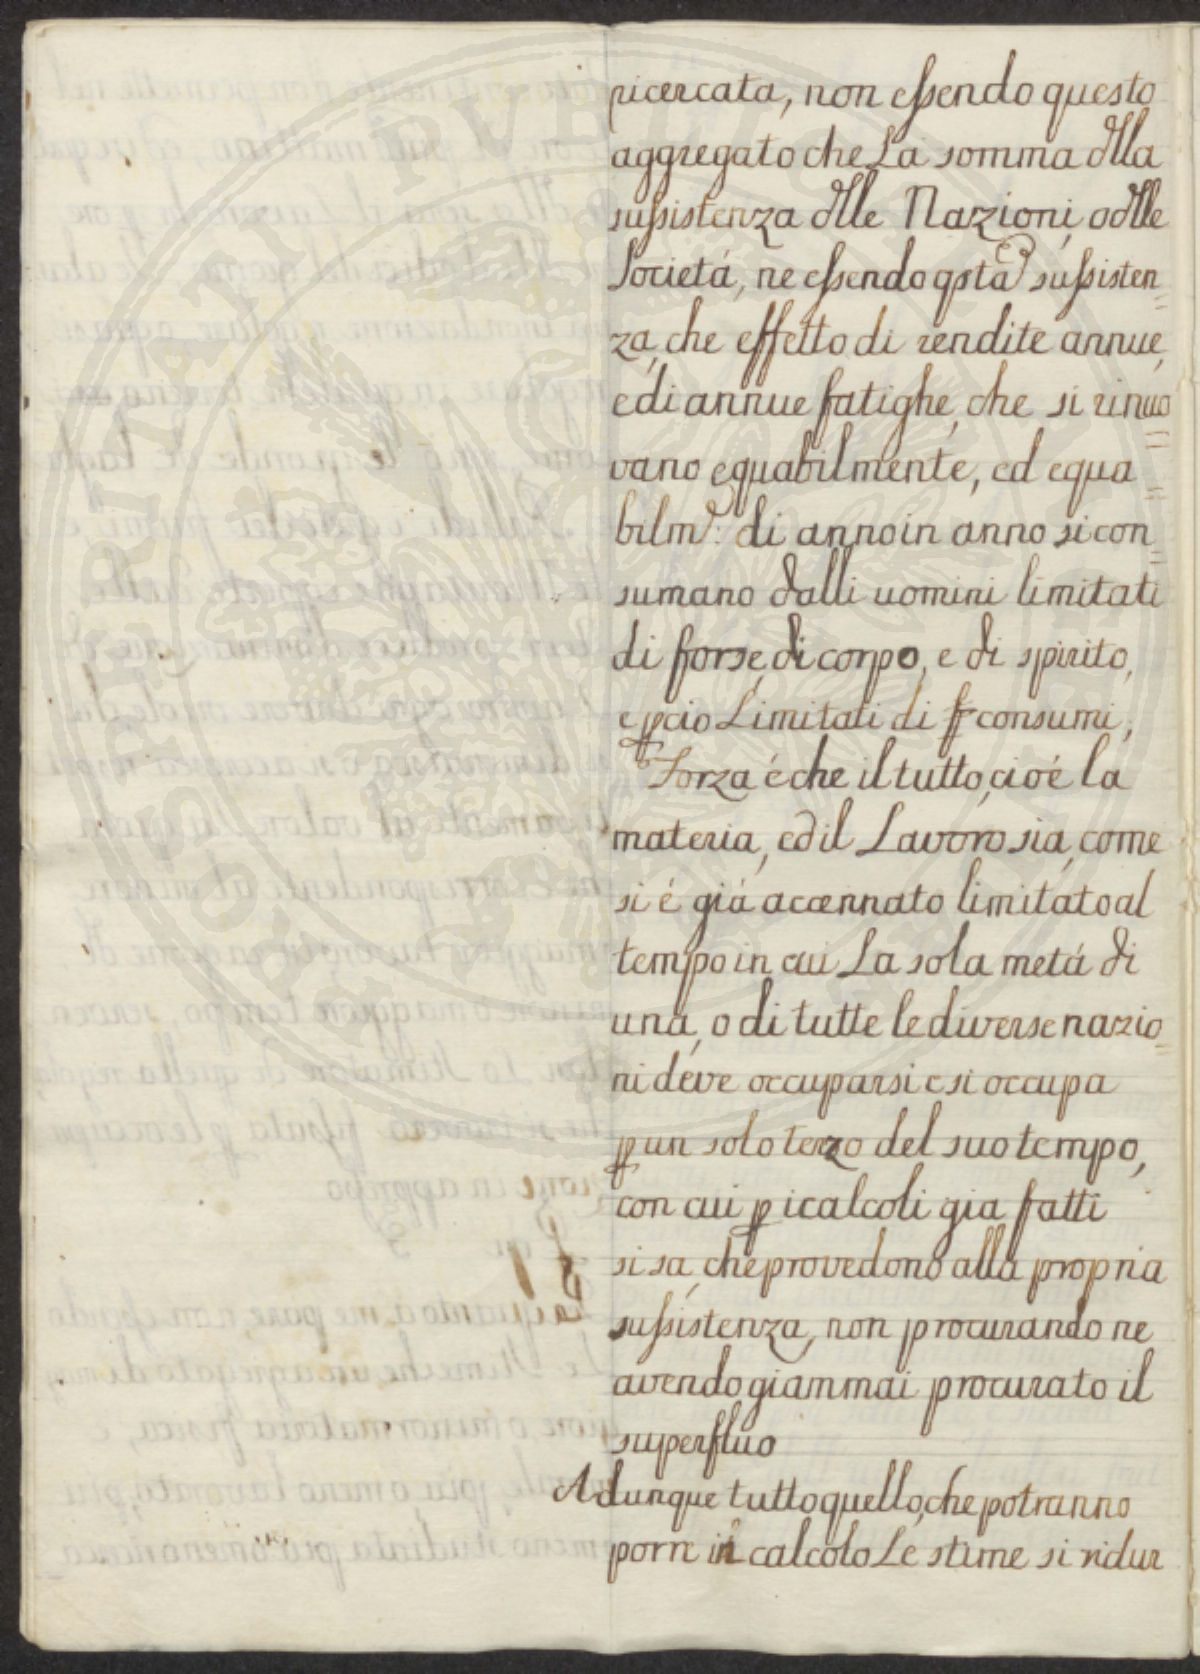 ricercata, non essendo questo
aggregato che La somma dlla
sussistenza dlle Nazioni, o dlle
Societá, ne essendo qsta sussisten
za, che effetto di rendite annue,
e di annue fatighe, che si rinuo
vano equabilmente, ed equa
bilme: di anno in anno si con
sumano dalli uomini limitati
di forse, di corpo, e di spirito,
e pcio Limitati di consumi,
Forza é che il tutto, cioé la
materia, ed il Lavoro sia, come
si é giá accennato limitato al
tempo in cui La sola metá di
una, o di tutte le diverse nazio
ni deve occuparsi e si occupa
p un solo terzo del suo tempo,
con cui p i calcoli gia fatti
si sa, che provedono alla propria
sussistenza, non procurando ne
avendo giammai procurato il
superfluo
Adunque tutto quello, che potranno
porre in calcolo Le stime si ridur